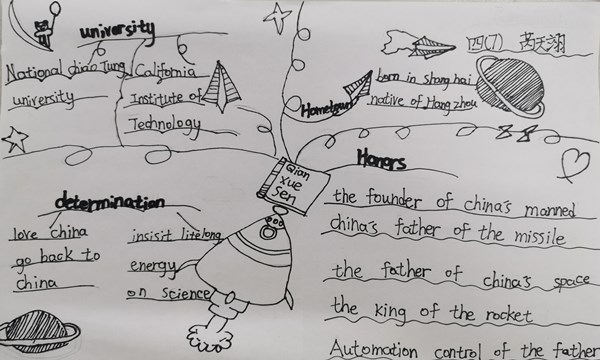 university
National chiao Tung
university
California
Institute of
Technology
四(7)
Hometown
born in Shanghai
native of Hangzhou
Qian
xue
sen
Honors
the founder of china's manned
china's father of the missile
the father of china's space
the king of the rocket
Automation control of the father
determination
love china
go back to
china
insisit lifelong
energy
on science